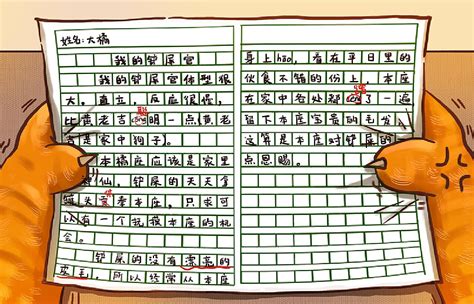 姓名:大橘
我的铲屎官
我的铲屎官体型很
大,直立,反应很慢,
聪
比黄老吉cōng明一点(黄老
是家中狗子)。
本橘座应该是家里
神仙,铲屎的天天拿
供
罐头贡着本座,只求可
以有一个抚摸本座的机
会。
铲屎的没有漂亮的
皮毛,所以经常从本座
身上hāo,看在平日里的
伙食不错的份上,本座
蹭
在家中各处都cèng了一遍
留下本座宝贵的毛发
这算是本座对铲屎的一
点恩赐。